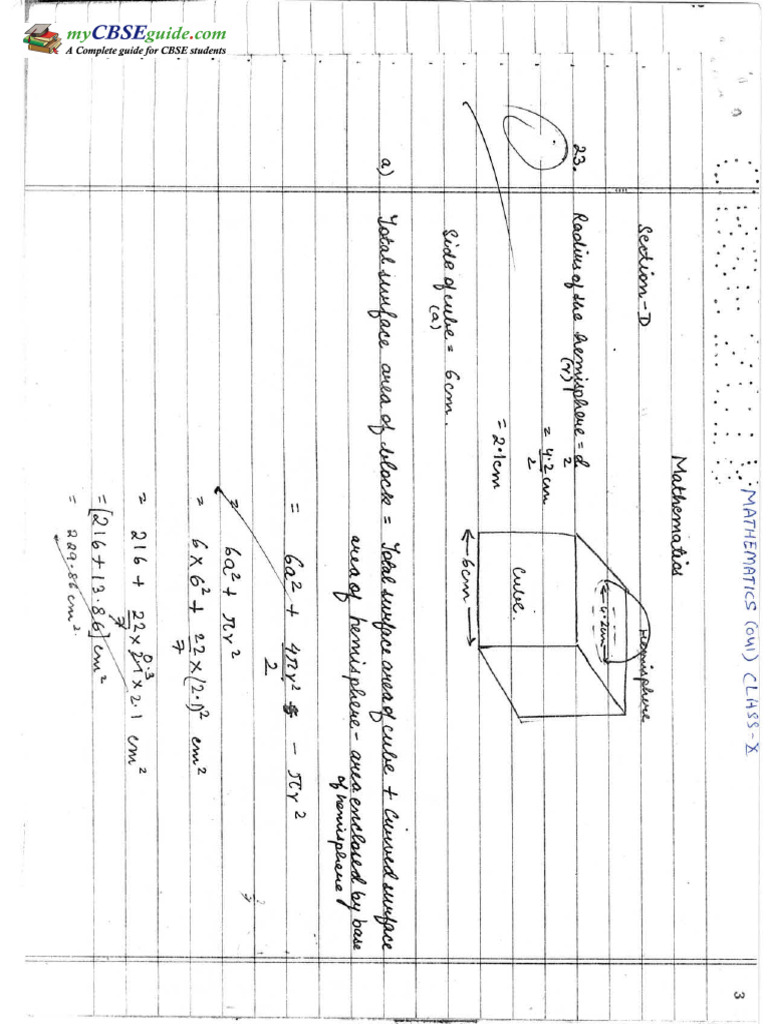 myCBSEguide.com
A Complete guide for CBSE students
MATHEMATICS (041) CLASS-X
3
Mathematics
Section-D
23. Radius of the hemisphere = d
(r) 2
= 4.2 cm
2
= 2.1cm
Hemisphere
4.2cm
cube.
6cm
Side of cube = 6cm.
(a)
a) Total surface area of block = Total surface area of cube + curved surface
area of hemisphere - area enclosed by base
of hemisphere
= 6a² + 4πr² - πr²
2
= 6a² + πr²
= 6 x 6² + 22 x (2.1)² cm²
7
= 216 + 22 x 2.1 x 2.1 cm²
7
0.3
= [216 + 13.86] cm²
= 229.86 cm².